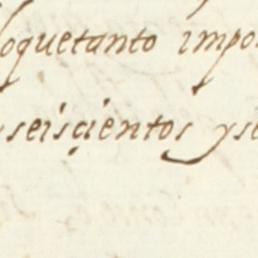 loquetanto impor
seisçientos yse